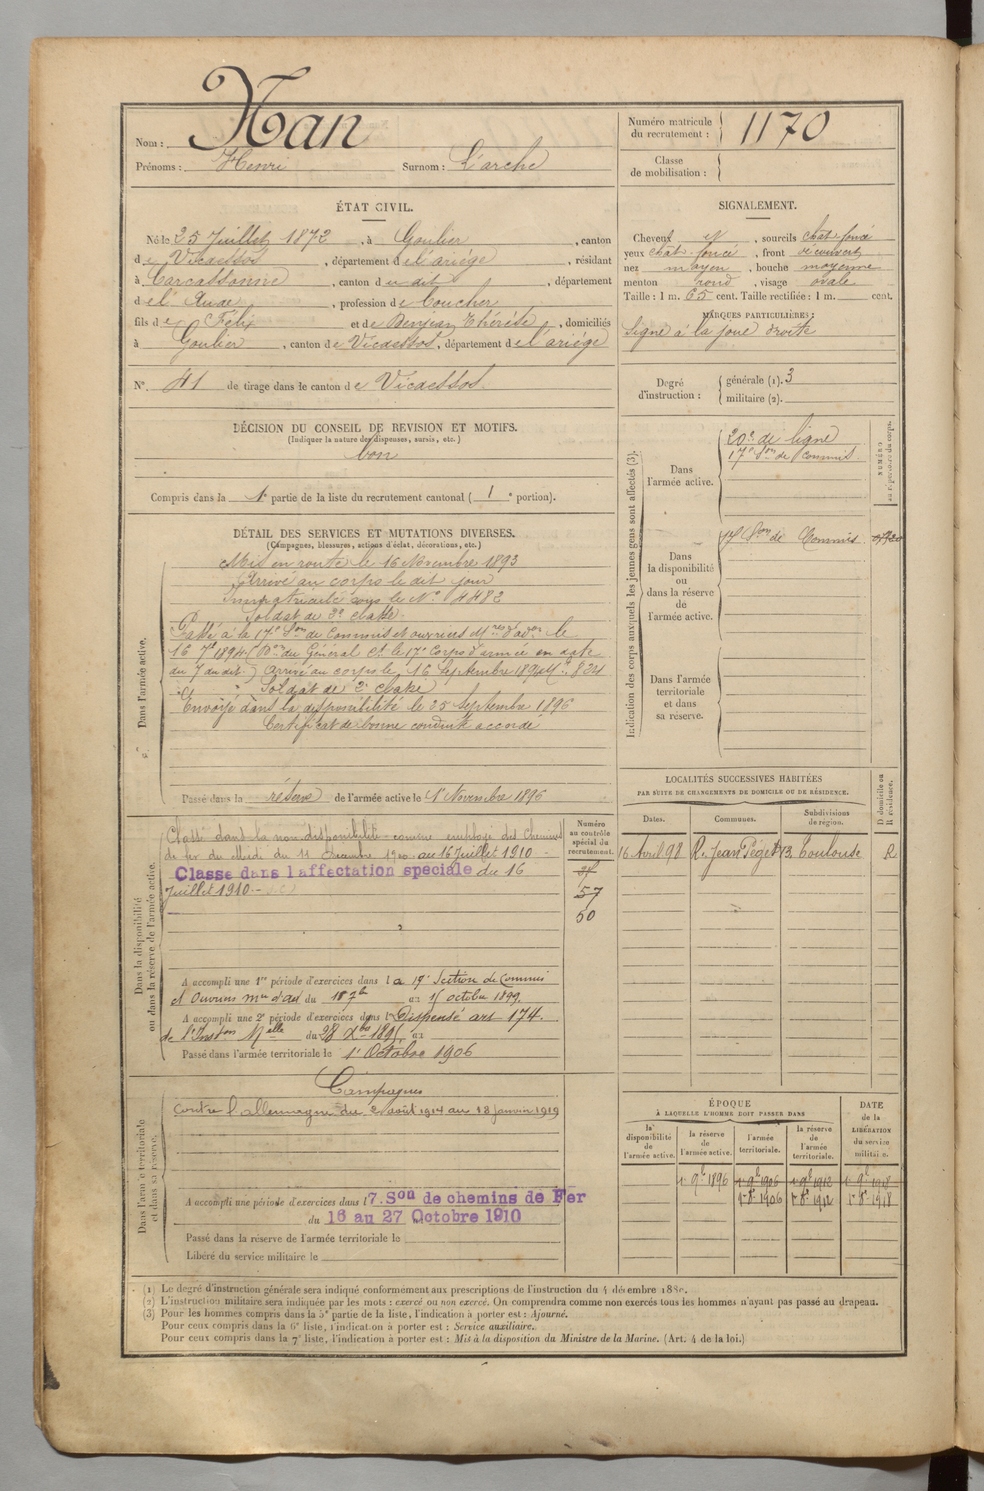 Nom : Nan
Prénoms : Henri Surnom : L'arche
Numéro matricule du recrutement : 1170
Classe de mobilisation :
ÉTAT CIVIL.
Né le 25 Juillet 1872, à Goulier, canton
de Vicdessos, département de l'ariège, résidant
à Carcassonne, canton du dit, département
de l'Aude, profession de Coucher
fils de Félix et de Benjean Thérèse, domiciliés
à Goulier, canton de Vicdessos, département de l'ariège
N° 41 de tirage dans le canton de Vicdessos.
SIGNALEMENT.
Cheveux N, sourcils chât. foncé
yeux chât. foncé, front découvert
nez moyen, bouche moyenne
menton rond, visage ovale
Taille : 1 m. 65 cent. Taille rectifiée : 1 m. cent.
MARQUES PARTICULIÈRES :
Signe à la joue droite
Degré d'instruction : générale (1). 3
militaire (2).
DÉCISION DU CONSEIL DE REVISION ET MOTIFS.
(Indiquer la nature des dispenses, sursis, etc.)
bon
Compris dans la 1e partie de la liste du recrutement cantonal ( 1 e portion).
DÉTAIL DES SERVICES ET MUTATIONS DIVERSES.
(Campagnes, blessures, actions d'éclat, décorations, etc.)
Dans l'armée active.
Mis en route le 16 Novembre 1893
Arrivé au corps le dit jour
Immatriculé sous le N° 4482
Soldat de 2e classe.
Passé à la 17e Son de Commis et ouvriers Mres d'adon le
16 7bre 1894 (Don du Général Ct le 17e Corps d'armée en date
du 7 du dit.) Arrivé au corps le 16 Septembre 1894 Mle 834
Soldat de 2e classe
Envoyé dans la disponibilité le 25 Septembre 1896
Certificat de bonne conduite accordé
Passé dans la réserve de l'armée active le 1er Novembre 1896
Indication des corps auxquels les jeunes gens sont affectés (3).
NUMÉRO au répertoire du corps.
Dans l'armée active.
20e de ligne
17e Son de Commis.
Dans la disponibilité ou dans la réserve de l'armée active.
17e Son de Commis
Dans l'armée territoriale et dans sa réserve.
LOCALITÉS SUCCESSIVES HABITÉES
PAR SUITE DE CHANGEMENTS DE DOMICILE OU DE RÉSIDENCE.
Dates. Communes. Subdivisions de région. D domicile ou R résidence.
16 Avril 98 R. Jean Toulouse R
Dans la disponibilité ou dans la réserve de l'armée active.
Numéro au contrôle spécial du recrutement.
Classé dans la non disponibilité comme employé des Chemins
de fer du Midi du 11 Décembre 1900 au 16 Juillet 1910
Classe dans l'affectation speciale du 16
Juillet 1910
57
50
A accompli une 1re période d'exercices dans la 17e Section de Commis
et Ouvriers mres d'adon du 18 7bre au 15 octobre 1899.
A accompli une 2e période d'exercices dans l Dispensé art 174.
de l'Inston Melle du 28 Xbre 1895 au
Passé dans l'armée territoriale le 1er Octobre 1906
Dans l'armée territoriale et dans sa réserve.
Campagnes
Contre l'allemagne du 2 août 1914 au 18 janvier 1919
A accompli une période d'exercices dans l 7. Son de chemins de Fer
du 16 au 27 Octobre 1910
Passé dans la réserve de l'armée territoriale le
Libéré du service militaire le
ÉPOQUE
À LAQUELLE L'HOMME DOIT PASSER DANS
la disponibilité de l'armée active. la réserve de l'armée active. l'armée territoriale. la réserve de l'armée territoriale.
DATE de la LIBÉRATION du service militaire.
1er 9bre 1896 1er 9bre 1906 1er 9bre 1912 1er 9bre 1918
1er 8bre 1906 1er 8bre 1912 1er 8bre 1918
(1) Le degré d'instruction générale sera indiqué conformément aux prescriptions de l'instruction du 4 décembre 1889.
(2) L'instruction militaire sera indiquée par les mots : exercé ou non exercé. On comprendra comme non exercés tous les hommes n'ayant pas passé au drapeau.
(3) Pour les hommes compris dans la 5e partie de la liste, l'indication à porter est : Ajourné.
Pour ceux compris dans la 6e liste, l'indication à porter est : Service auxiliaire.
Pour ceux compris dans la 7e liste, l'indication à porter est : Mis à la disposition du Ministre de la Marine. (Art. 4 de la loi.)